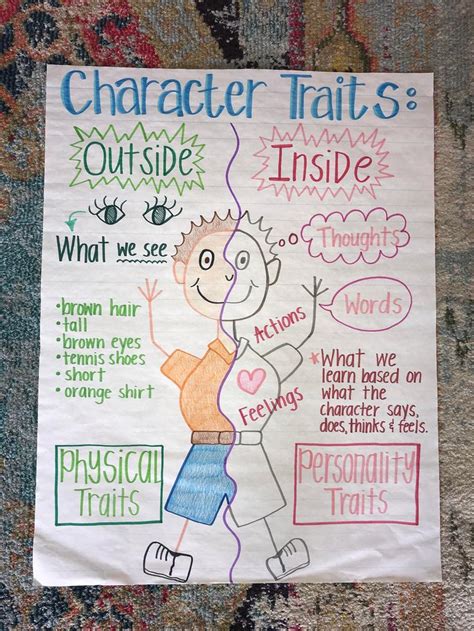 Character Traits:
Outside
Inside
What we see
Thoughts
Words
• brown hair
• tall
• brown eyes
• tennis shoes
• short
• orange shirt
Actions
Feelings
*What we
learn based on
what the
character says,
does, thinks & feels.
Physical
Traits
Personality
Traits